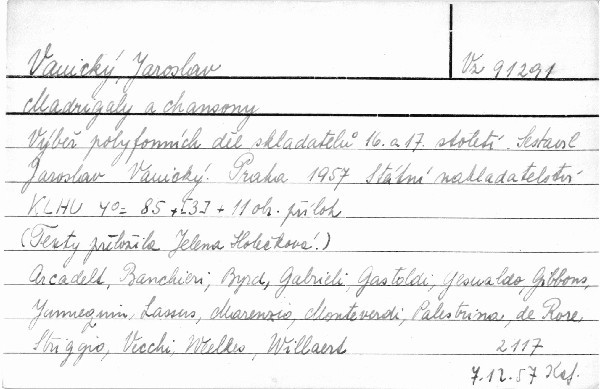 Vanický, Jaroslav Vz 91291
Madrigaly a chansony
Výběr polyfonních děl skladatelů 16. a 17. století. Sestavil
Jaroslav Vanický. Praha 1957 Státní nakladatelství
KLHU 4° = 85 + [3] + 11 obr. příloh
(Texty přeložila Jelena Holečková.)
Arcadelt, Banchieri, Byrd, Gabrieli, Gastoldi, Gesualdo, Gibbons,
Jannequin, Lassus, Marenzio, Monteverdi, Palestrina, de Rore,
Striggio, Vecchi, Weelkes, Willaert 2117
7.12.57 Kaf.